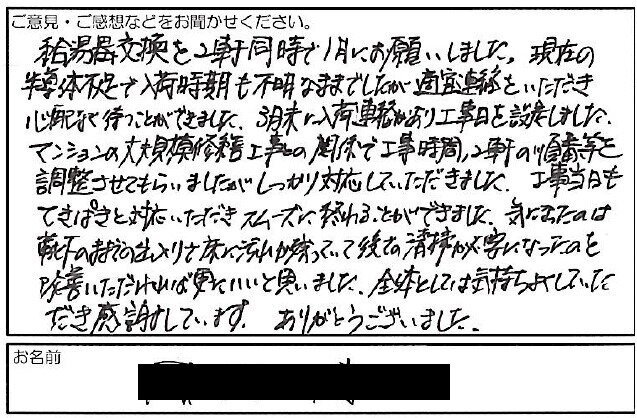 ご意見・ご感想などをお聞かせください。
給湯器交換を2軒同時で1月にお願いしました。現在の
半導体不足で入荷時期も不明なままでしたが適宜連絡をいただき
心配なく待つことができました。3月末に入荷連絡があり工事日を設定しました。
マンションの大規模修繕工事との関係で工事時間、2軒の順番等を
調整させてもらいましたがしっかり対応していただきました。工事当日も
てきぱきと対応いただきスムーズに終わることができました。気になったのは
靴下のままでの出入りで床に汚れが残っていて後での清掃が必要になったのを
改善いただければ更にいいと思いました。全体としては気持ちよくしていた
だき感謝しています。ありがとうございました。
お名前